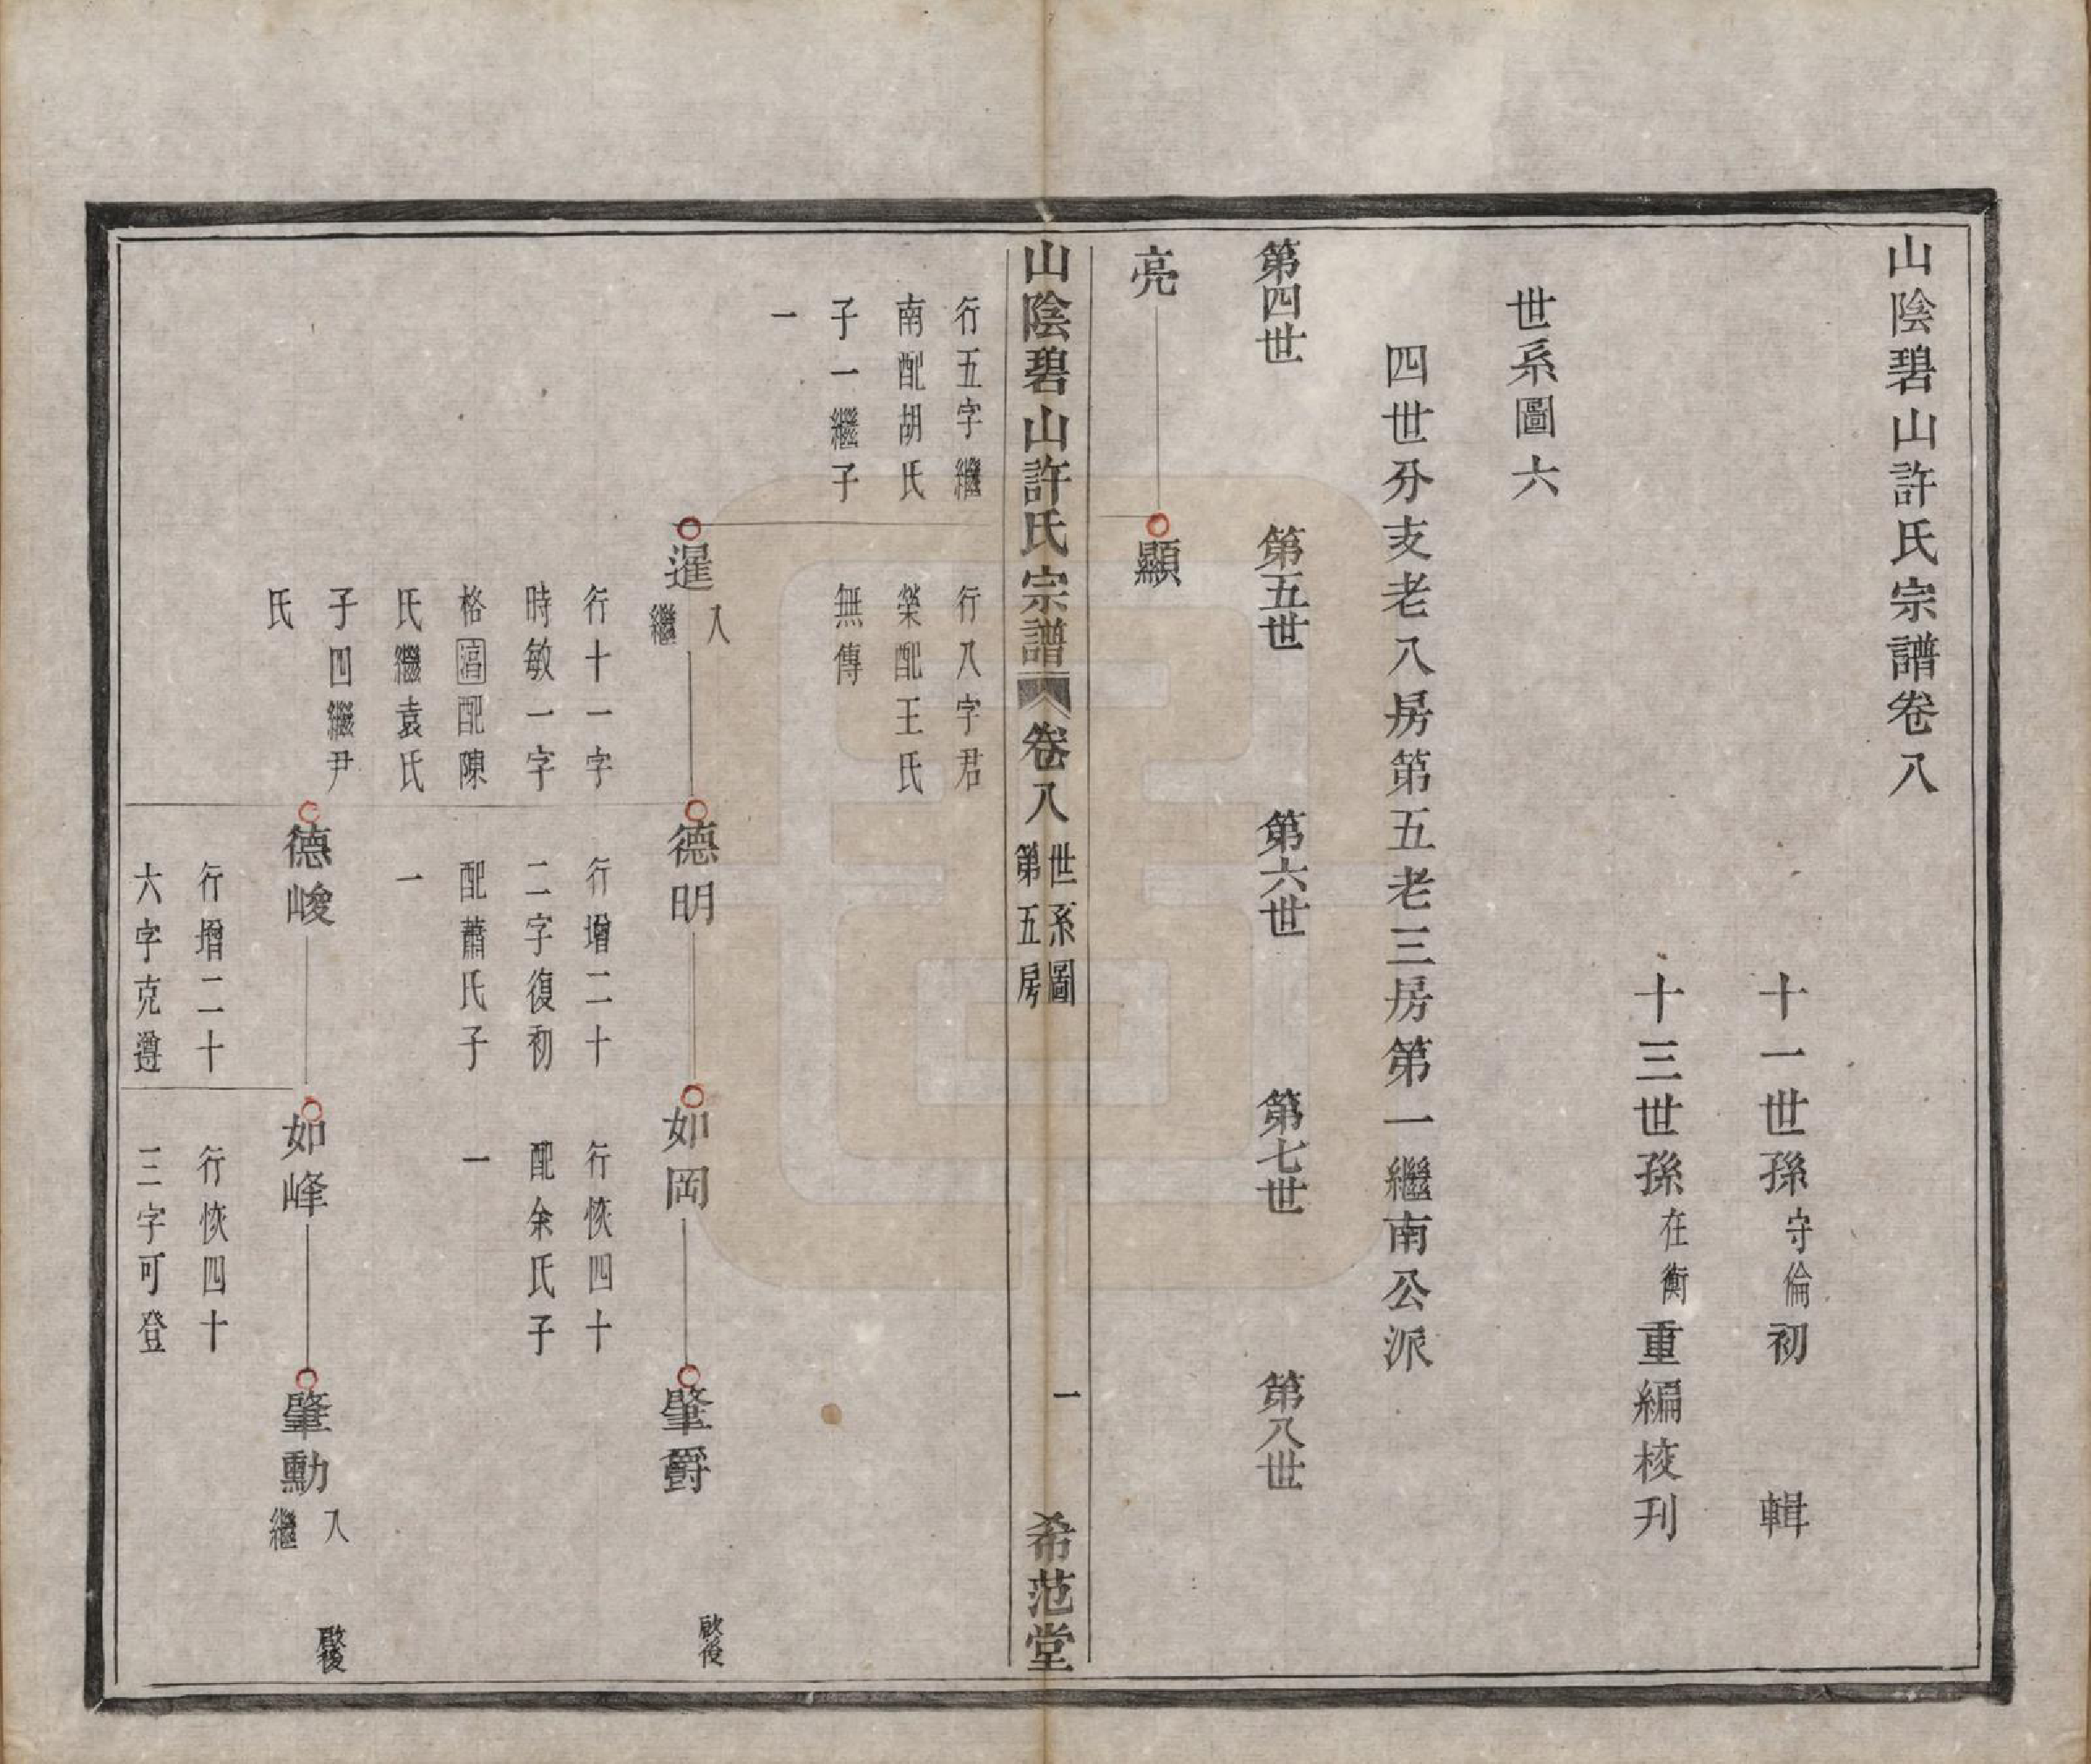 山陰碧山許氏宗譜卷八
十一世孫守倫初輯
十三世孫在衡重編校刊
世系圖六
四世分支老八房第五老三房第一繼南公派
第四世
第五世
第六世
第七世
第八世
亮
顯
山陰碧山許氏宗譜
卷八
世系圖
第五房
一
希范堂
行五字繼
南配胡氏
子一繼子
一
行八字君
榮配王氏
無傳
暹
入
繼
德明
如岡
肇爵
啟後
行十一字
時敏一字
格滔配陳
氏繼袁氏
子四繼尹
氏
行增二十
二字復初
配蕭氏子
一
行恢四十
配余氏子
一
德峻
如峰
肇勳
入
繼
啟後
行增二十
六字克遵
行恢四十
三字可登